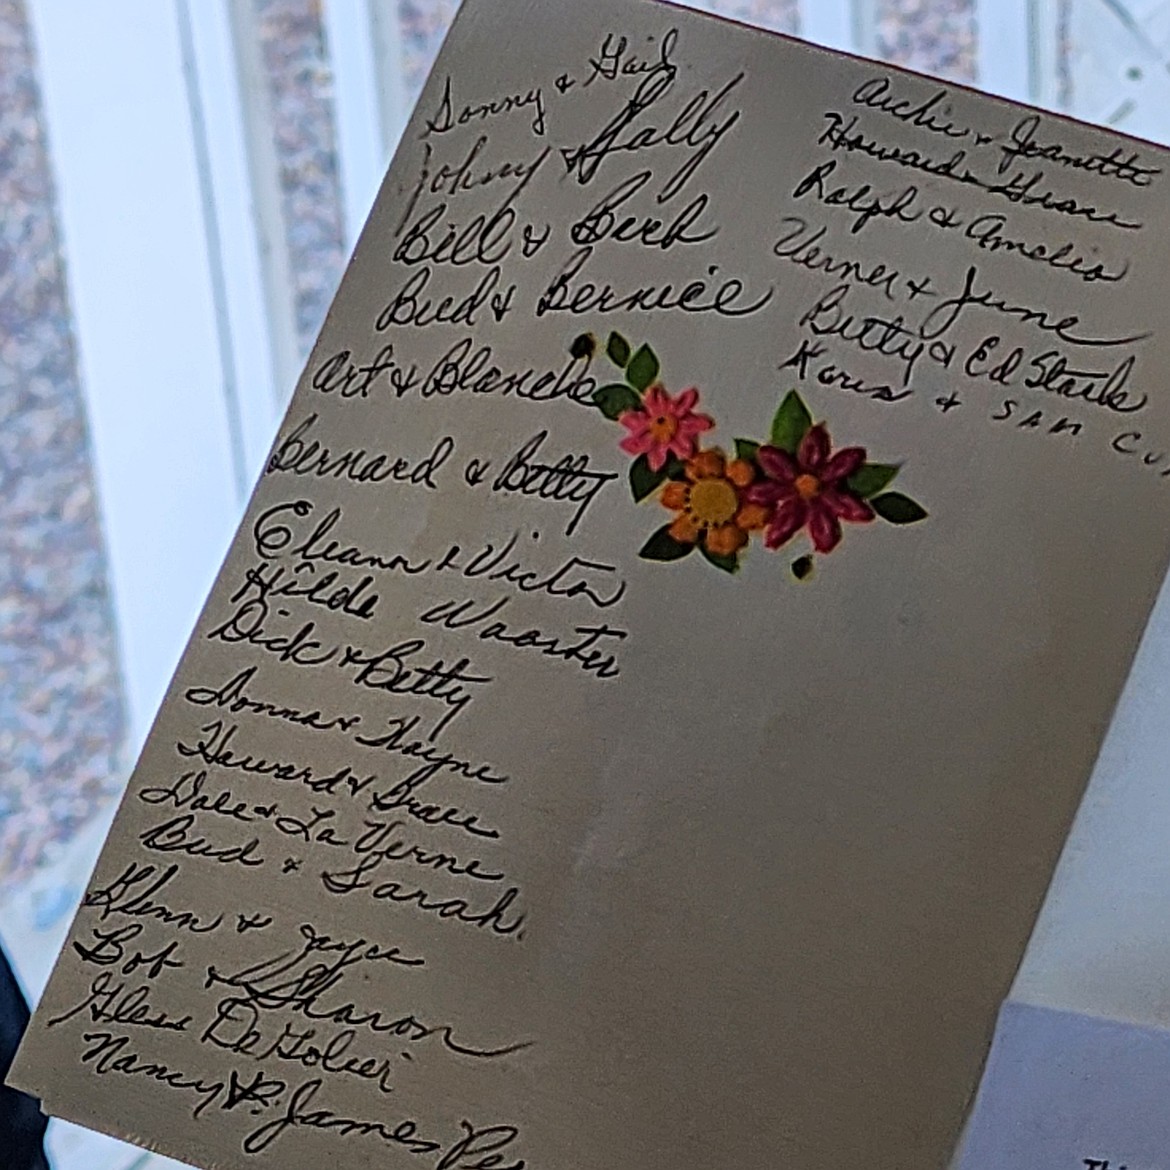 Sonny & Gail
Johny & Sally
Bill & Barb
Bud & Bernice
Art & Blanche
Bernard & Betty
Eleann & Victor
Hilda Waaster
Dick & Betty
Donna & Wayne
Howard & Grace
Dale & La Verne
Bud & Sarah
Glenn & Joyce
Bob & Sharon
Glenn De Golier
Nancy & James
Archie & Jeanette
Howard & Grace
Ralph & Amelia
Verner & June
Betty & Ed Stark
Karen & SAM